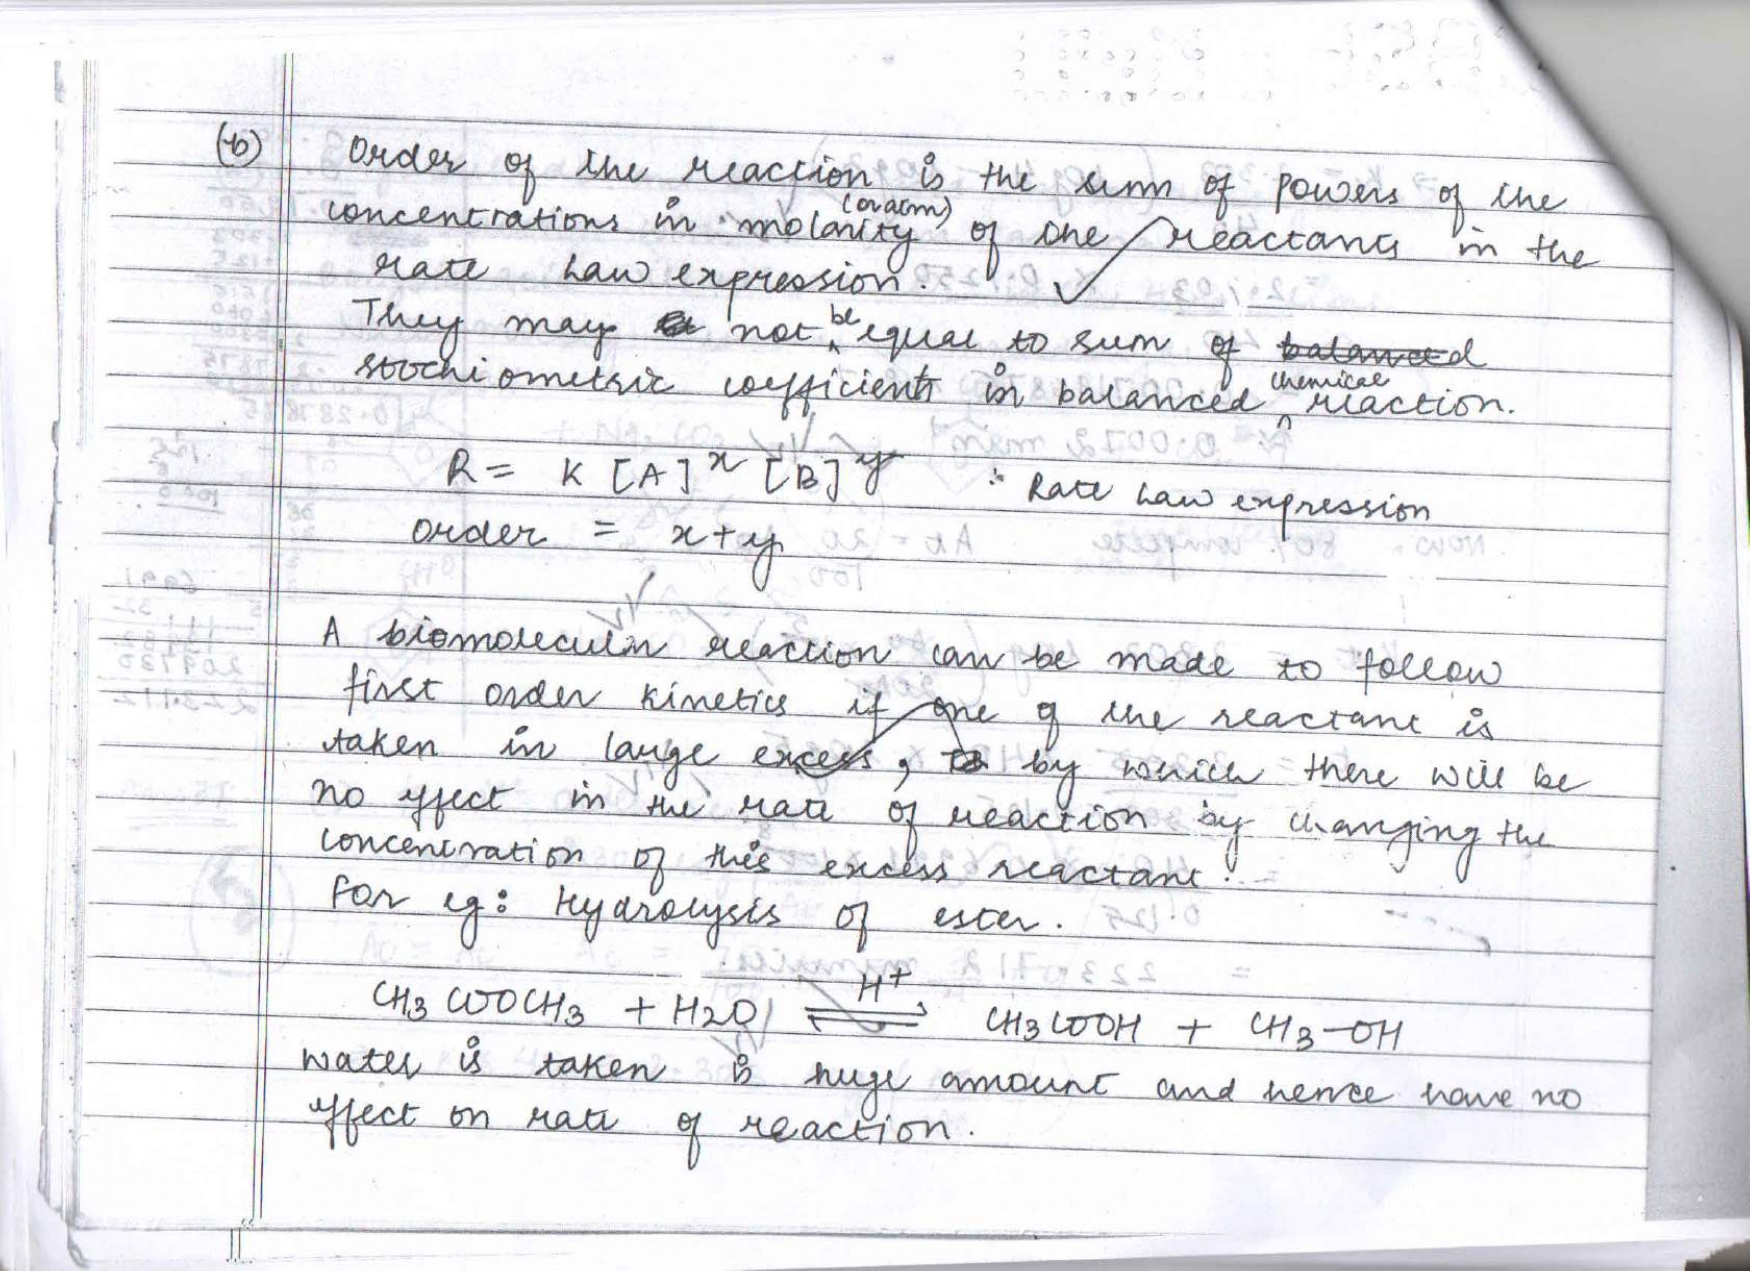 (b) Order of the reaction is the sum of powers of the
concentrations in molarity (or atm) of the reactants in the
rate law expression.
They may not be equal to sum of balanced
stochiometric coefficients in balanced chemical reaction.
R = K [A]^x [B]^y : Rate Law expression
order = x+y
A biomolecular reaction can be made to follow
first order kinetics if one of the reactant is
taken in large excess, by which there will be
no effect in the rate of reaction by changing the
concentration of this excess reactant.
For eg: Hydrolysis of ester.
CH3 COOCH3 + H2O ⇌ H+ CH3COOH + CH3-OH
water is taken is huge amount and hence have no
effect on rate of reaction.